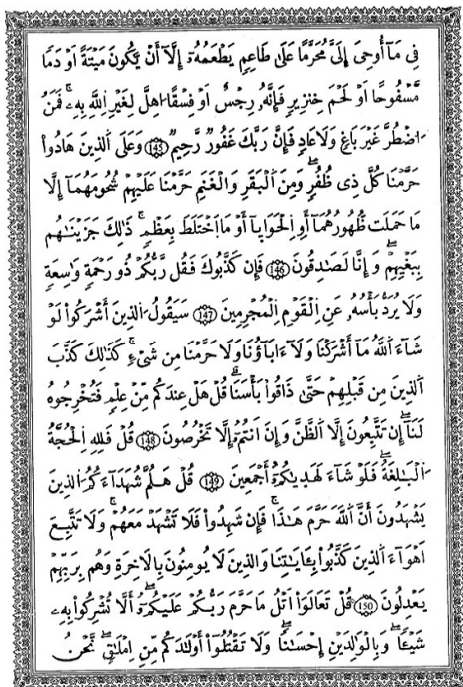 فِي مَآ أُوحِىَ إِلَىَّ مُحَرَّمًا عَلَىٰ طَاعِمٍ يَطْعَمُهُۥٓ إِلَّآ أَنْ يَّكُونَ مَيْتَةً اَوْ دَمًا
مَّسْفُوحًا اَوْ لَحْمَ خِنزِيرٍ فَإِنَّهُۥ رِجْسٌ اَوْ فِسْقًا اهِلَّ لِغَيْرِ اِ۬للَّهِ بِهِۦۚ فَمَنُ
اُ۟ضْطُرَّ غَيْرَ بَاغٍ وَلَا عَادٍ فَإِنَّ رَبَّكَ غَفُورٌ رَّحِيمٌ 145 وَعَلَى اَ۬لذِينَ هَادُواْ
حَرَّمْنَا كُلَّ ذِى ظُفُرٍۖ وَمِنَ اَ۬لْبَقَرِ وَالْغَنَمِ حَرَّمْنَا عَلَيْهِمْ شُحُومَهُمَآ إِلَّا
مَا حَمَلَت ظُّهُورُهُمَآ أَوِ اِ۬لْحَوَايَآ أَوْ مَا اَ۪خْتَلَطَ بِعَظْمٍۚ ذَٰلِكَ جَزَيْنَٰهُم
بِبَغْيِهِمْۖ وَإِنَّا لَصَٰدِقُونَ 146 فَإِن كَذَّبُوكَ فَقُل رَّبُّكُمْ ذُو رَحْمَةٍ وَٰسِعَةٍ
وَلَا يُرَدُّ بَأْسُهُۥ عَنِ اِ۬لْقَوْمِ اِ۬لْمُجْرِمِينَ 147 سَيَقُولُ اُ۬لذِينَ أَشْرَكُواْ لَوْ
شَآءَ اَ۬للَّهُ مَآ أَشْرَكْنَا وَلَآ ءَابَآؤُنَا وَلَا حَرَّمْنَا مِن شَىْءٍۚ كَذَٰلِكَ كَذَّبَ
اَ۬لذِينَ مِن قَبْلِهِمْ حَتَّىٰ ذَاقُواْ بَأْسَنَاۗ قُلْ هَلْ عِندَكُم مِّنْ عِلْمٍ فَتُخْرِجُوهُ
لَنَآۖ إِن تَتَّبِعُونَ إِلَّا اَ۬لظَّنَّ وَإِنَ اَنتُمُۥٓ إِلَّا تَخْرُصُونَ 148 قُلْ فَلِلهِ اِ۬لْحُجَّةُ
اُ۬لْبَٰلِغَةُۖ فَلَوْ شَآءَ لَهَدَيٰكُمُۥٓ أَجْمَعِينَ 149 قُلْ هَلُمَّ شُهَدَآءَكُمُ اُ۬لذِينَ
يَشْهَدُونَ أَنَّ اَ۬للَّهَ حَرَّمَ هَٰذَاۖ فَإِن شَهِدُواْ فَلَا تَشْهَدْ مَعَهُمْۖ وَلَا تَتَّبِعَ
اَهْوَآءَ اَ۬لذِينَ كَذَّبُواْ بِـَٔايَٰتِنَا وَالذِينَ لَا يُومِنُونَ بِالَاخِرَةِ وَهُم بِرَبِّهِمْ
يَعْدِلُونَ 150 قُلْ تَعَالَوَاْ اَتْلُ مَا حَرَّمَ رَبُّكُمْ عَلَيْكُمُۥٓۖ أَلَّا تُشْرِكُواْ بِهِۦ
شَيْـٔٗاۖ وَبِالْوَٰلِدَيْنِ إِحْسَٰنٗاۖ وَلَا تَقْتُلُوٓاْ أَوْلَٰدَكُم مِّنِ اِمْلَٰقٍۖ نَّحْنُ